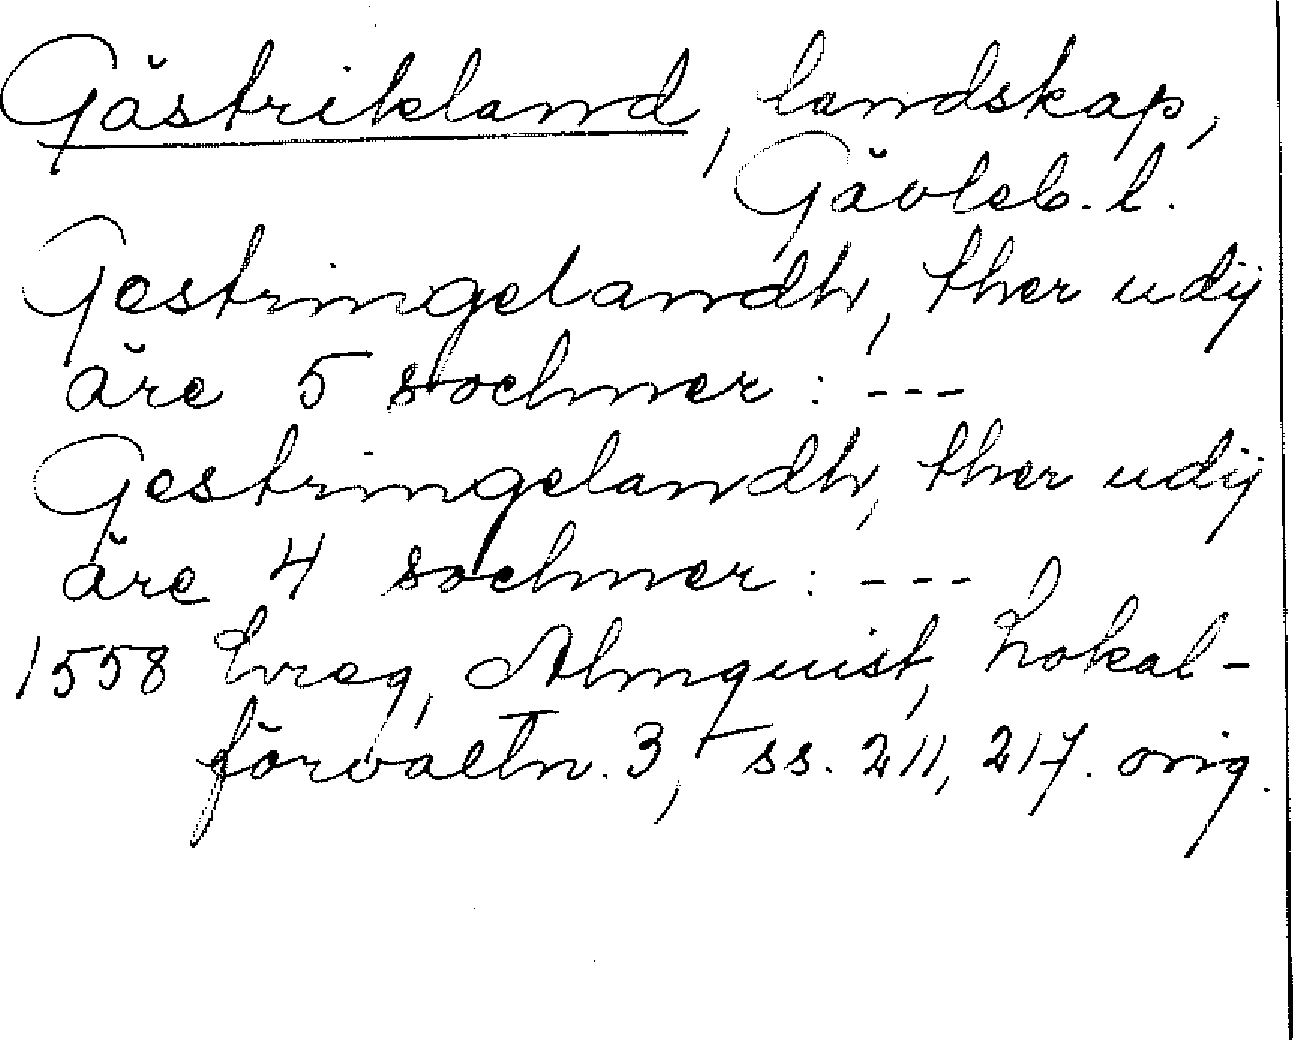 Gästrikland, landskap,
Gävleb. l.
Gestringelandh, ther udij
äre 5 sochner: ---
Gestringelandh, ther udij
äre 4 sochner: ---
1558 Lvreg, Almquist, Lokal-
förvaltn. 3, ss. 211, 217. orig.